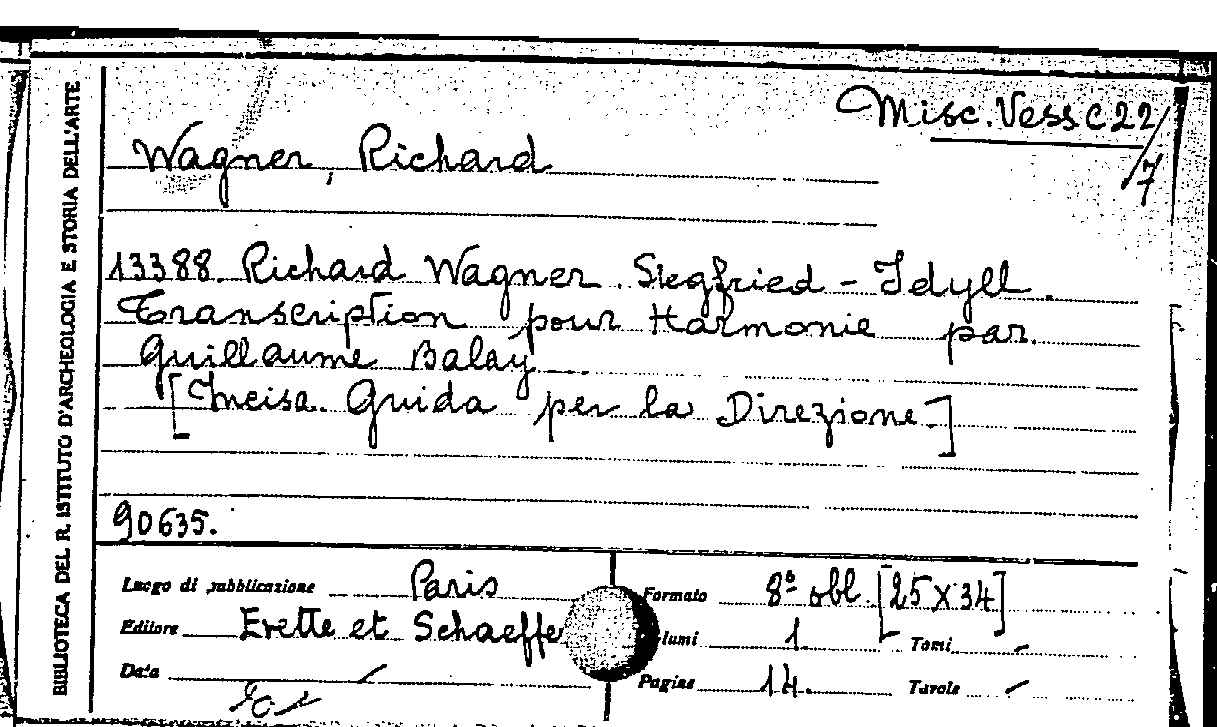 Misc. Vess C 22/7
Wagner, Richard
13388. Richard Wagner. Siegfried - Idyll.
Transcription pour Harmonie par
Guillaume Balay
[Incisa. Guida per la Direzione]
90635.
Luogo di pubblicazione Paris
Formato 8° obl. [25 X 34]
Editore Evette et Schaeffe
lumi 1. Tomi
Data
Pagine 14. Tavole
BIBLIOTECA DEL R. ISTITUTO D'ARCHEOLOGIA E STORIA DELL'ARTE